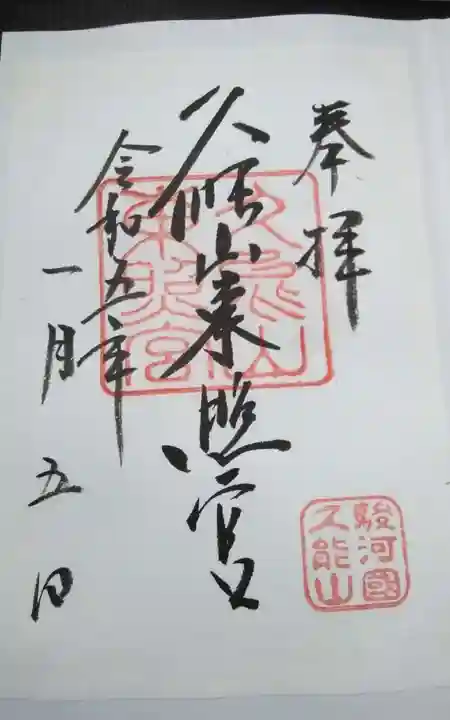 奉拝
久能山東照宮
令和五年
一月五日
久能山
東照宮
駿河國
久能山